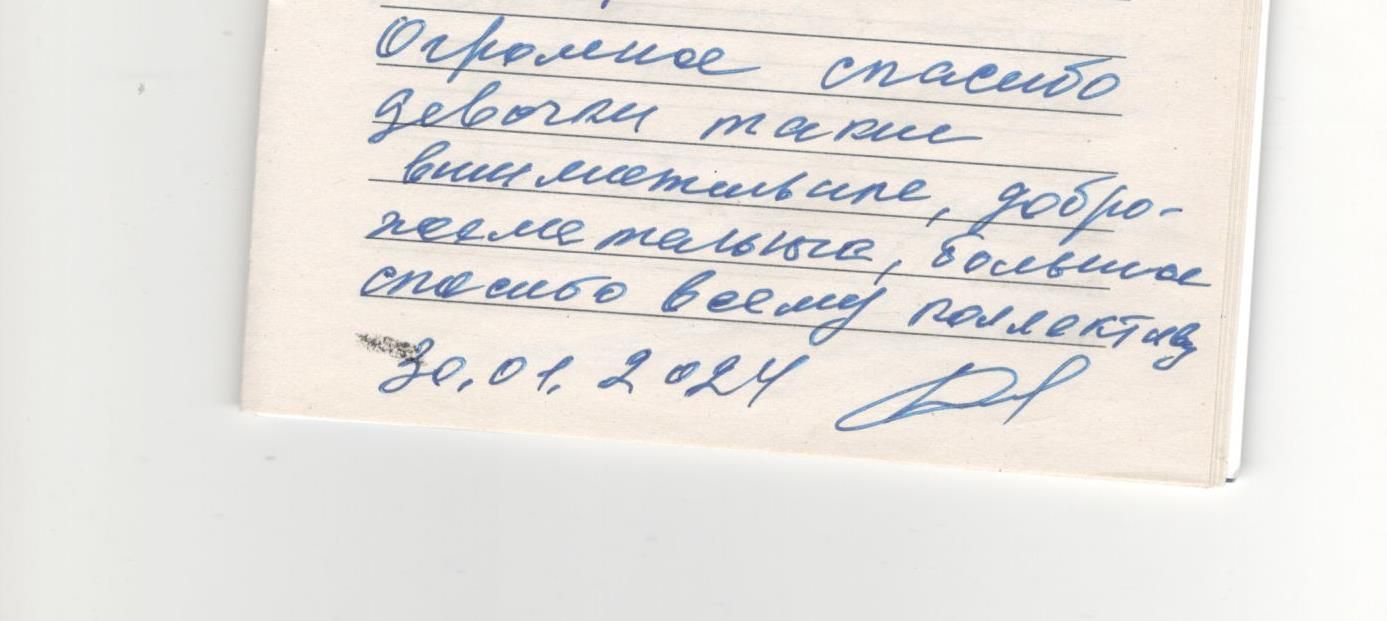 Огромное спасибо
девочки такие
внимательные, добро-
желательные, большое
спасибо всему коллективу
30.01.2024